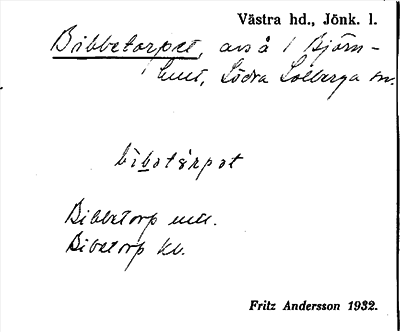 Västra hd., Jönk. l.
Bibbetorpet, avs å 1 Björn-
hult, Södra Solberga sn.
bìbətårpət
Bibbetorp
Bibetorp kb.
Fritz Andersson 1932.